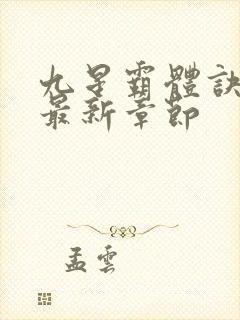 九星霸體訣
最新章節
孟雲